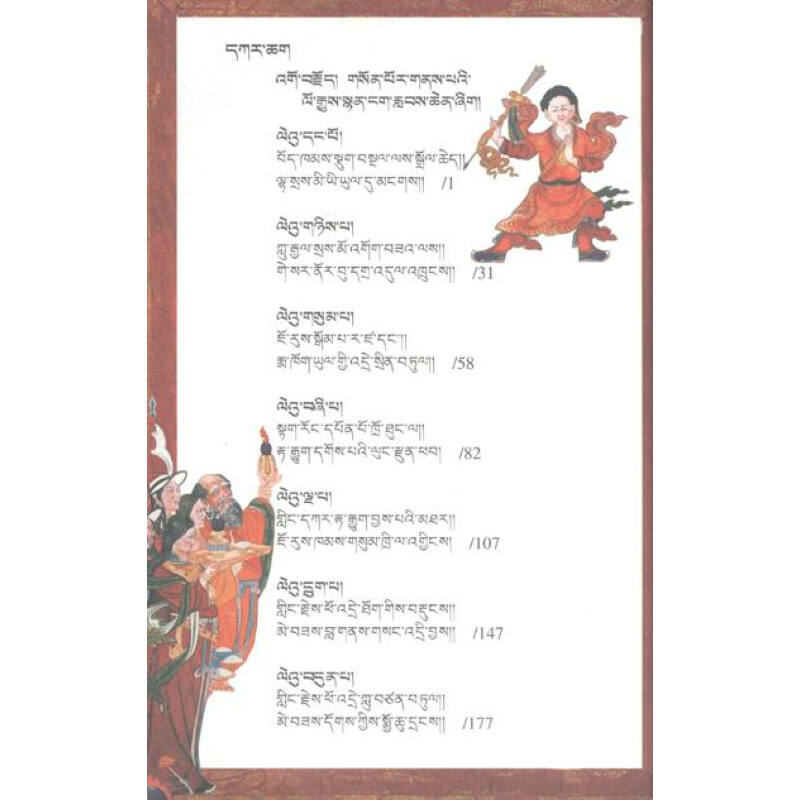 དཀར་ཆག
འགོ་བརྗོད། གསོན་པོར་གནས་པའི་
ལོ་རྒྱུས་སྙན་ངག་རླབས་ཆེན་ཞིག།
ལེའུ་དང་པོ།
བོད་ཁམས་སྡུག་བསྔལ་ལས་སྒྲོལ་ཆེད།།
ལྷ་སྲས་མི་ཡི་ཡུལ་དུ་མངགས།། /1
ལེའུ་གཉིས་པ།
ཀླུ་རྒྱལ་སྲས་མོ་འགོག་བཟའ་ལས།།
གེ་སར་ནོར་བུ་དགྲ་འདུལ་འཁྲུངས།། /31
ལེའུ་གསུམ་པ།
ཇོ་རུས་སྒོམ་པ་ར་ཛ་དང་།།
རྨ་ཁོག་ཡུལ་གྱི་འདྲེ་སྲིན་བཏུལ།། /58
ལེའུ་བཞི་པ།
སྟག་རོང་དཔོན་པོ་ཁྲོ་ཐུང་ལ།།
རྟ་རྒྱུག་དགོས་པའི་ལུང་རྫུན་ཕབ། /82
ལེའུ་ལྔ་པ།
གླིང་དཀར་རྟ་རྒྱུག་བྱས་པའི་མཐར།།
ཇོ་རུས་ཁམས་གསུམ་ཁྲི་ལ་འགྱིངས། /107
ལེའུ་དྲུག་པ།
གླིང་རྗེས་ཕོ་འདྲེ་ཐོག་གིས་བརྡུངས།།
མེ་བཟས་བླ་གནས་གསང་འདྲི་བྱས།། /147
ལེའུ་བདུན་པ།
གླིང་རྗེས་ཕོ་འདྲེ་ཀླུ་བཙན་བཏུལ།།
མེ་བཟས་དོགས་ཀྱིས་སྨྱོ་ཆུ་དྲངས།། /177